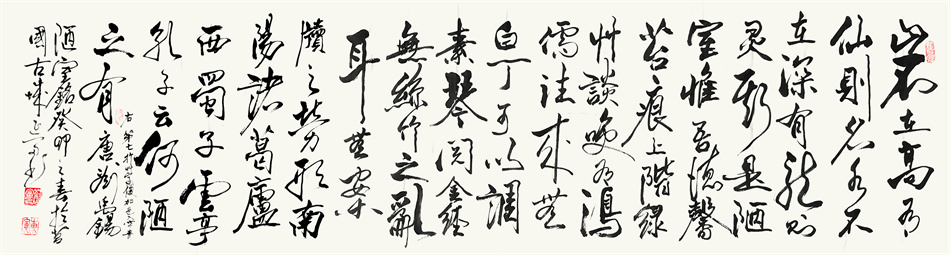 山不在高有
仙則名水不
在深有龙則
灵斯是陋
室惟吾德馨
苔痕上階緑
艸談笑有鴻
儒往来無
白丁可以調
素琴閲金經
無絲竹之亂
耳無案
牘之勞形南
陽諸葛廬
西蜀子雲亭
孔子云何陋
之有 唐劉禹錫
右第七行
陋室銘癸卯之春於晋
國古城